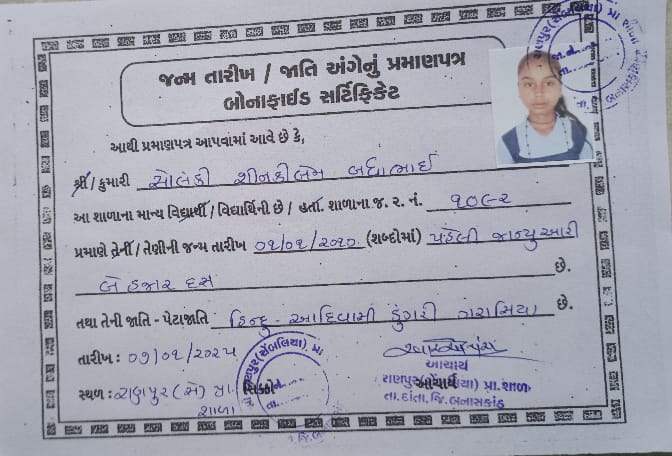 જન્મ તારીખ / જાતિ અંગેનું પ્રમાણપત્ર
બોનાફાઈડ સર્ટિફિકેટ
આથી પ્રમાણપત્ર આપવામાં આવે છે કે,
શ્રી / કુમારી સોલંકી
આ શાળાના માન્ય વિદ્યાર્થી / વિદ્યાર્થિની છે / હતા. શાળાના જ. ર. નં. ૧૦૯૨
પ્રમાણે તેની / તેણીની જન્મ તારીખ ૦૧/૦૧/૨૦૧૦. (શબ્દોમાં) પહેલી જાન્યુઆરી
બે હજાર દસ છે.
તથા તેની જાતિ - પેટાજાતિ હિન્દુ - આદિવાસી ડુંગરી ગરાસિયા છે.
તારીખ : ૦૭/૦૧/૨૦૨૫
આચાર્ય
સ્થળ : રાણપુર (સે) પ્રા સિક્કો આચાર્ય
શાળા
તા. દાંતા, જિ. બનાસકાંઠા